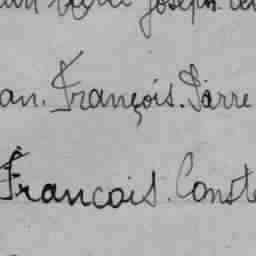 Joseph
an. François. Pierre
Francois. Const